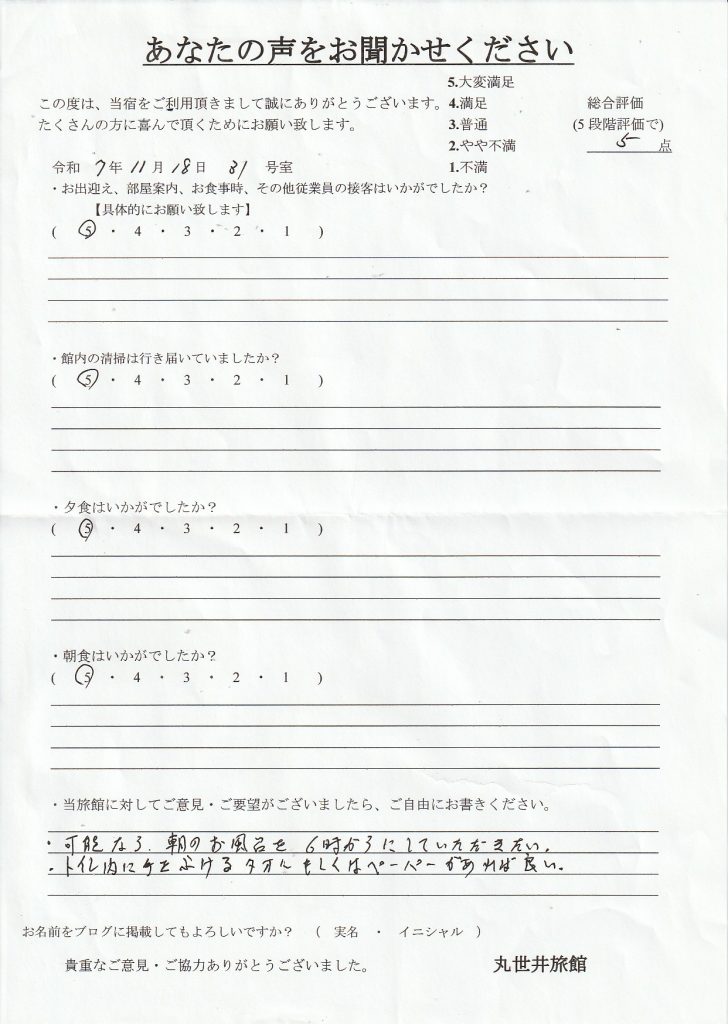 あなたの声をお聞かせください
5.大変満足
この度は、当宿をご利用頂きまして誠にありがとうございます。 4.満足 総合評価
たくさんの方に喜んで頂くためにお願い致します。 3.普通 (5段階評価で)
2.やや不満 5 点
令和 7年 11月 18日 31 号室 1.不満
・お出迎え、部屋案内、お食事時、その他従業員の接客はいかがでしたか?
【具体的にお願い致します】
( 5 ・ 4 ・ 3 ・ 2 ・ 1 )
・館内の清掃は行き届いていましたか?
( 5 ・ 4 ・ 3 ・ 2 ・ 1 )
・夕食はいかがでしたか?
( 5 ・ 4 ・ 3 ・ 2 ・ 1 )
・朝食はいかがでしたか?
( 5 ・ 4 ・ 3 ・ 2 ・ 1 )
・当旅館に対してご意見・ご要望がございましたら、ご自由にお書きください。
・可能なら、朝のお風呂を 6時からにしていただきたい。
・トイレ内に手をふけるタオルもしくはペーパーがあれば良い。
お名前をブログに掲載してもよろしいですか? ( 実名 ・ イニシャル )
貴重なご意見・ご協力ありがとうございました。 丸世井旅館